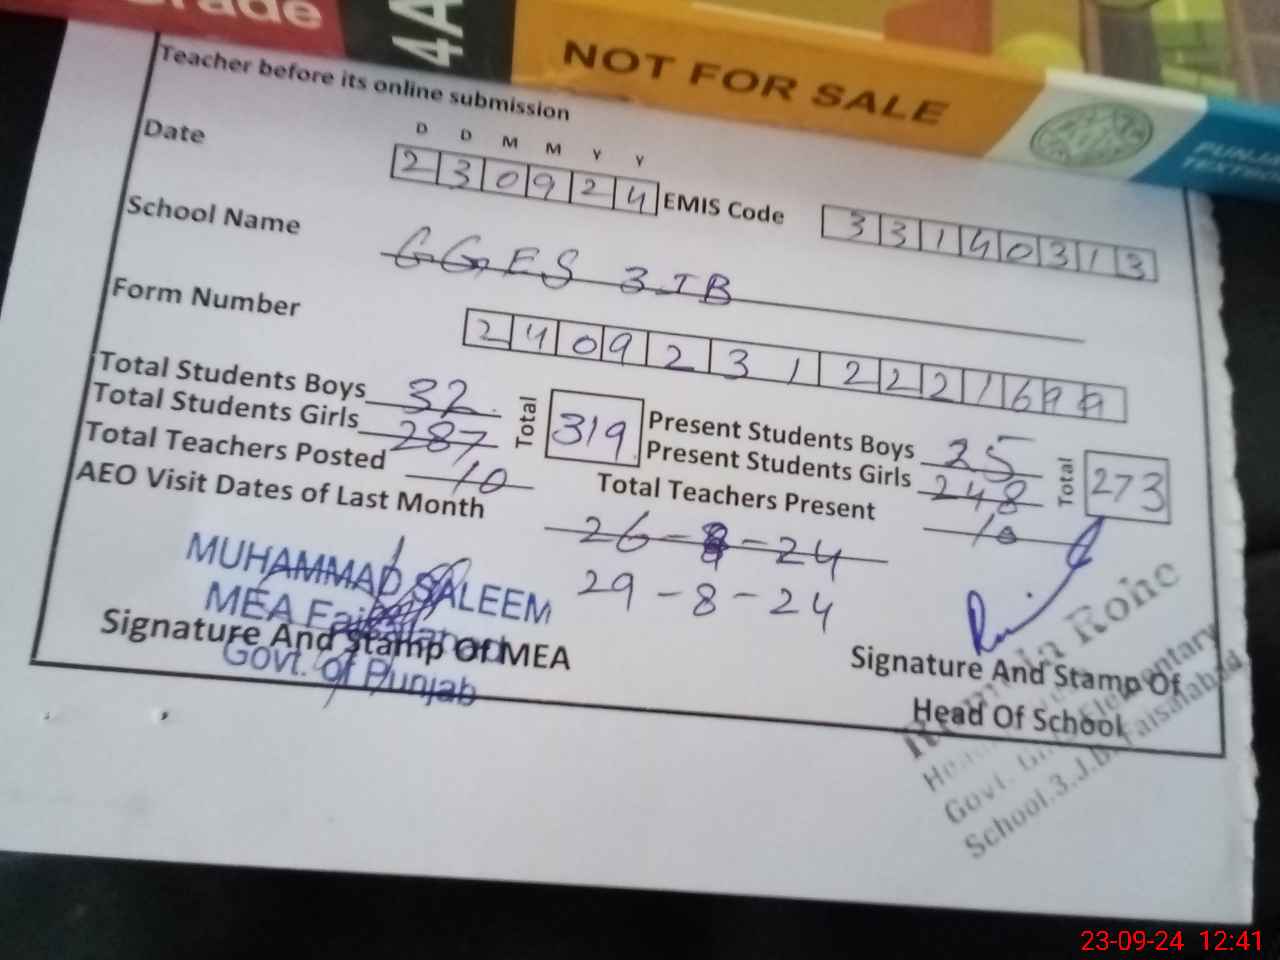 Grade
4A
NOT FOR SALE
Teacher before its online submission
D D M M Y Y
Date 2 3 0 9 2 4 EMIS Code 3 3 1 4 0 3 1 3
School Name GGES 3-JB
Form Number 2 4 0 9 2 3 1 2 2 2 1 6 9 9
Total Students Boys 32 Total 319 Present Students Boys 25 Total 273
Total Students Girls 287 Present Students Girls 248
Total Teachers Posted 10 Total Teachers Present 10
AEO Visit Dates of Last Month 26-8-24
29-8-24
MUHAMMAD SALEEM
MEA Faisalabad
Govt. of Punjab
Signature And Stamp Of MEA
Signature And Stamp Of
Head Of School
Govt. Elementary
School.3.J.B.Faisalabad
23-09-24 12:41